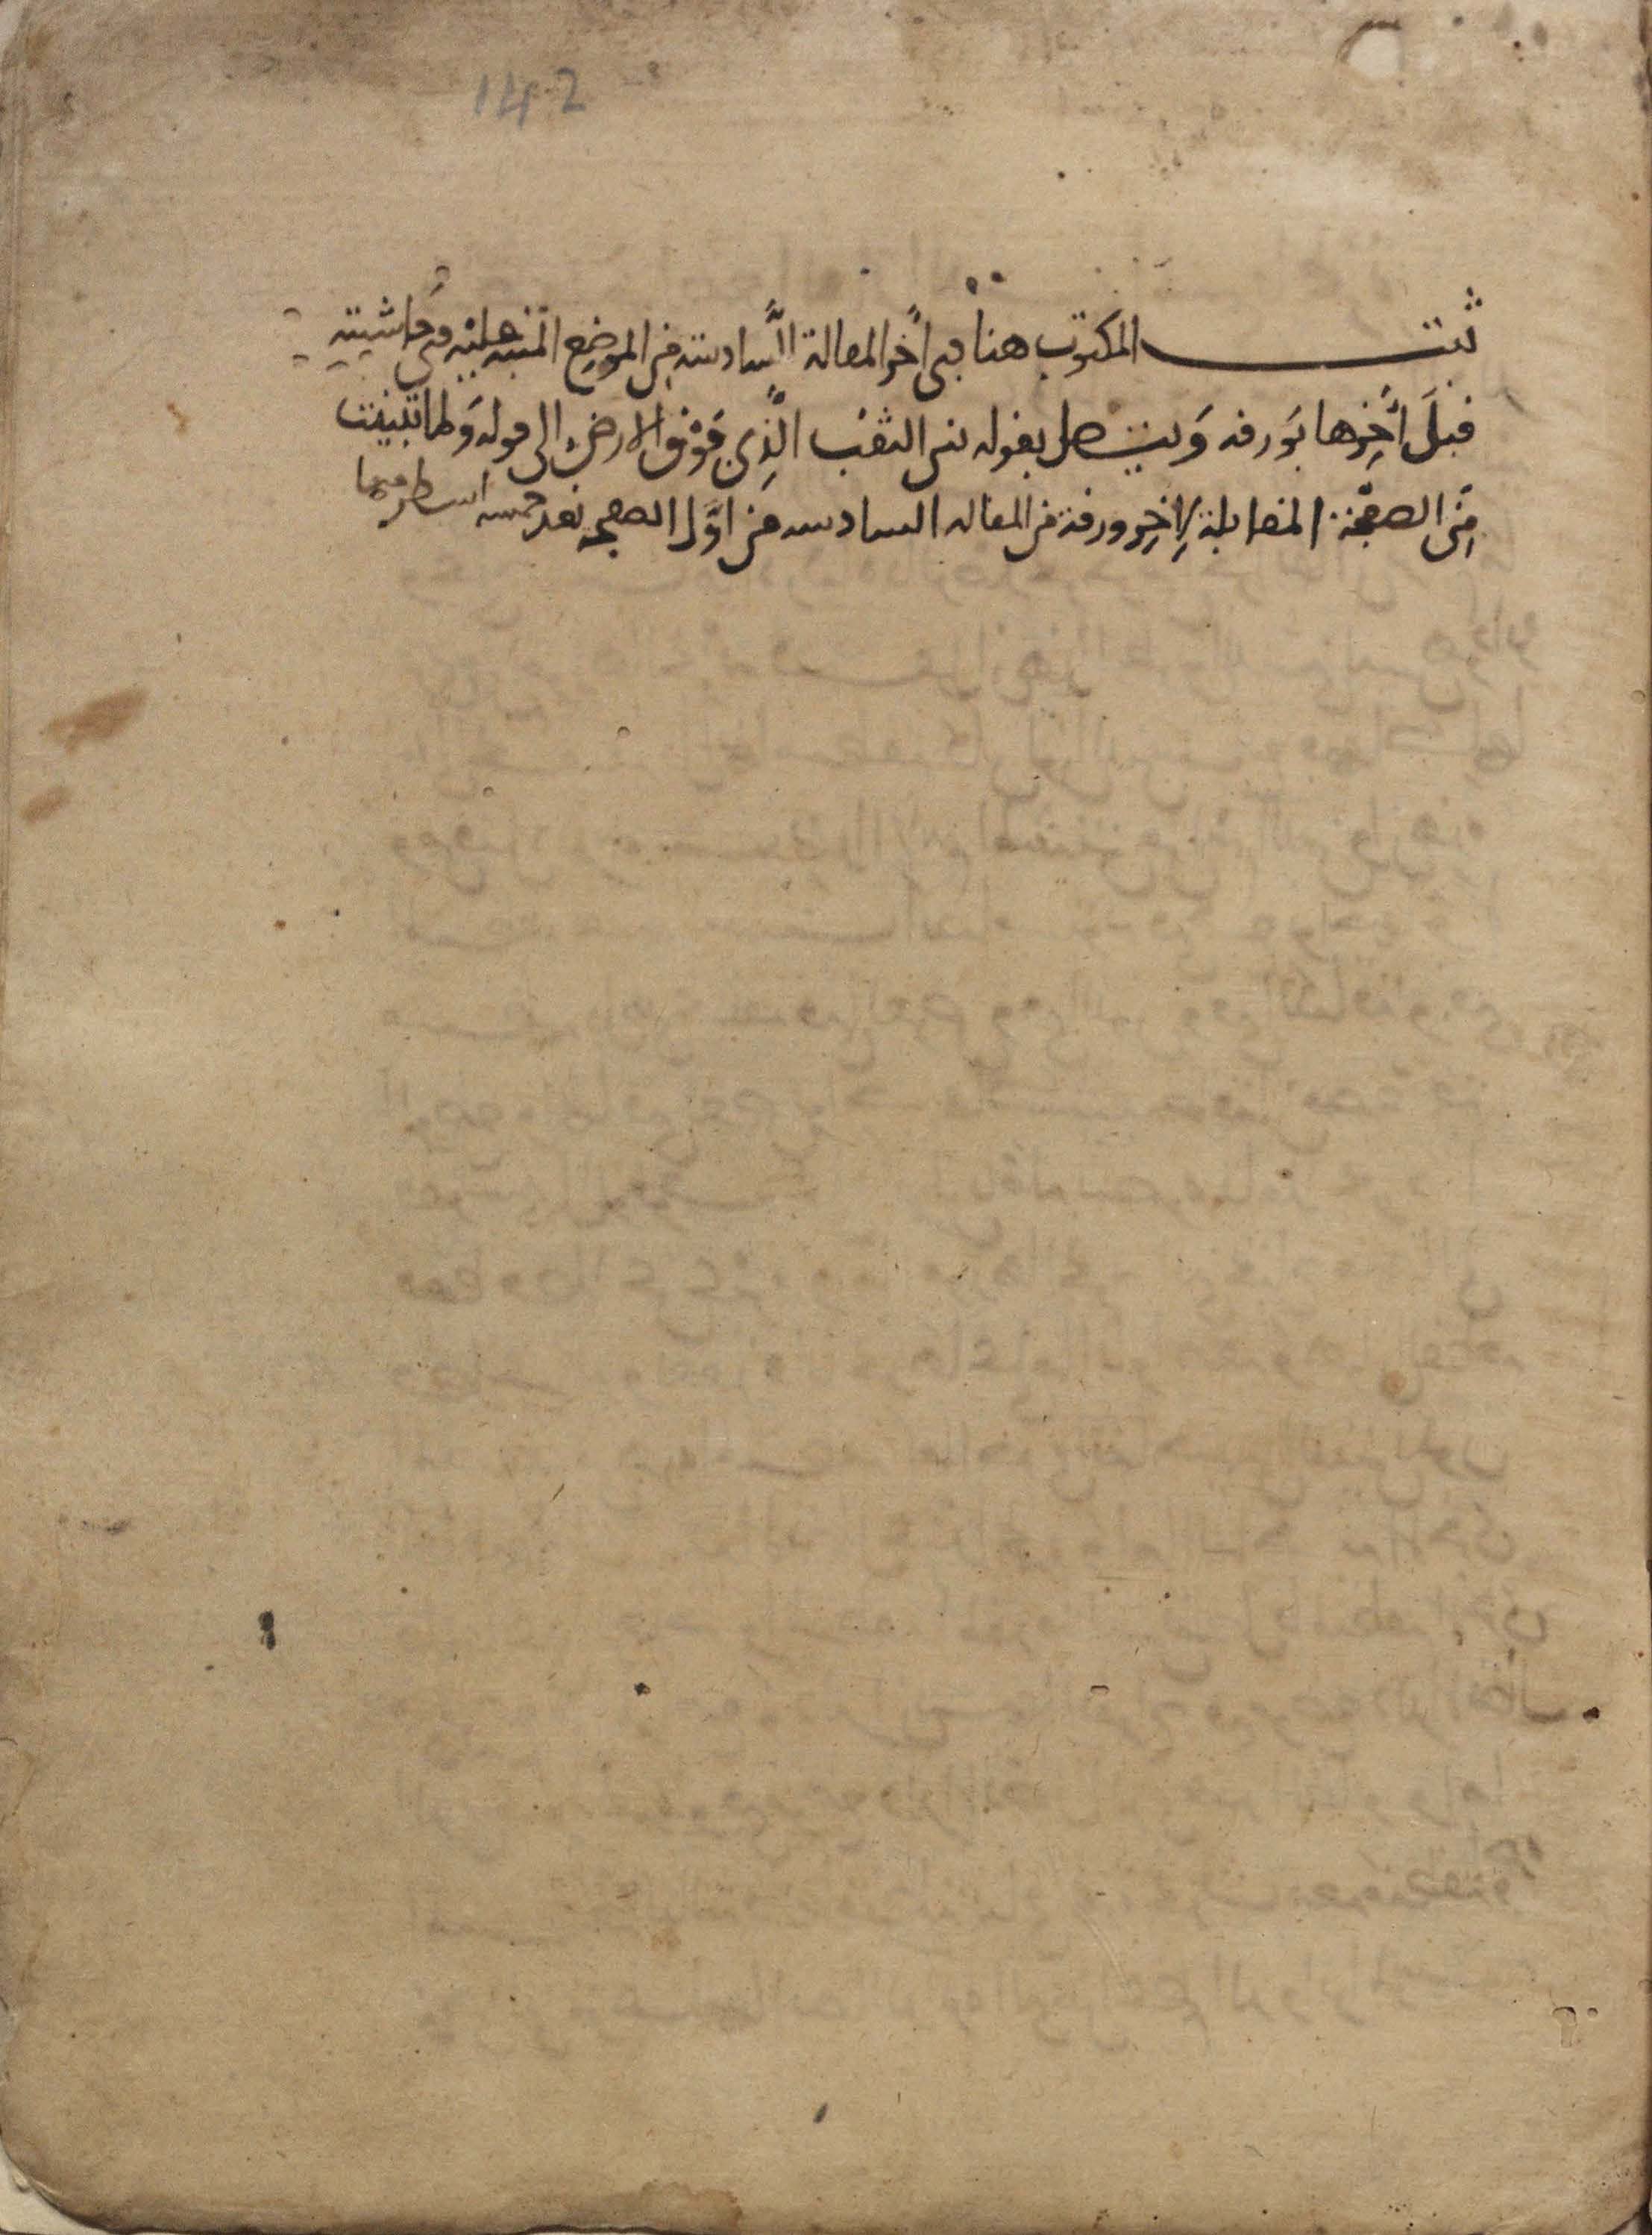 142
ثبت المكتوب هنا في اخر المقالة السادسة من الموضع المنبه عليه في حاشيته
قبل اخرها بورقه ويتصل بقوله الثقب الذي فوق الارض الى قوله ولما تبينت
من الصفحة المقابلة لاخر ورقة من المقاله السادسه من اول الصفحه بعد خمسه اسطر منها